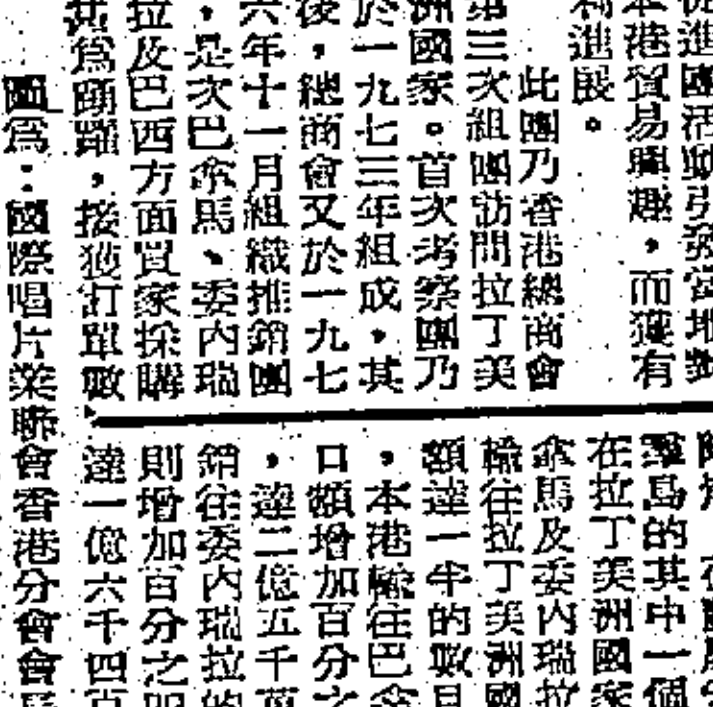 進國活動引發當地對
本港貿易興趣，而獲有
利進展。
此團乃香港總商會
第三次組團訪問拉丁美
洲國家。首次考察團乃
於一九七三年組成，其
後，總商會又於一九七
六年十一月組織推銷團
，是次巴拿馬、委內瑞
拉及巴西方面買家採購
甚爲踴躍，接獲訂單數
圖爲：國際唱片業聯會香港分會會
羣島的其中一個
在拉丁美洲國家
拿馬及委內瑞拉
輸往拉丁美洲國
額達一半的數目
，本港輸往巴拿
口額增加百分之
，達二億五千萬
銷往委內瑞拉的
則增加百分之四
達一億六千四百